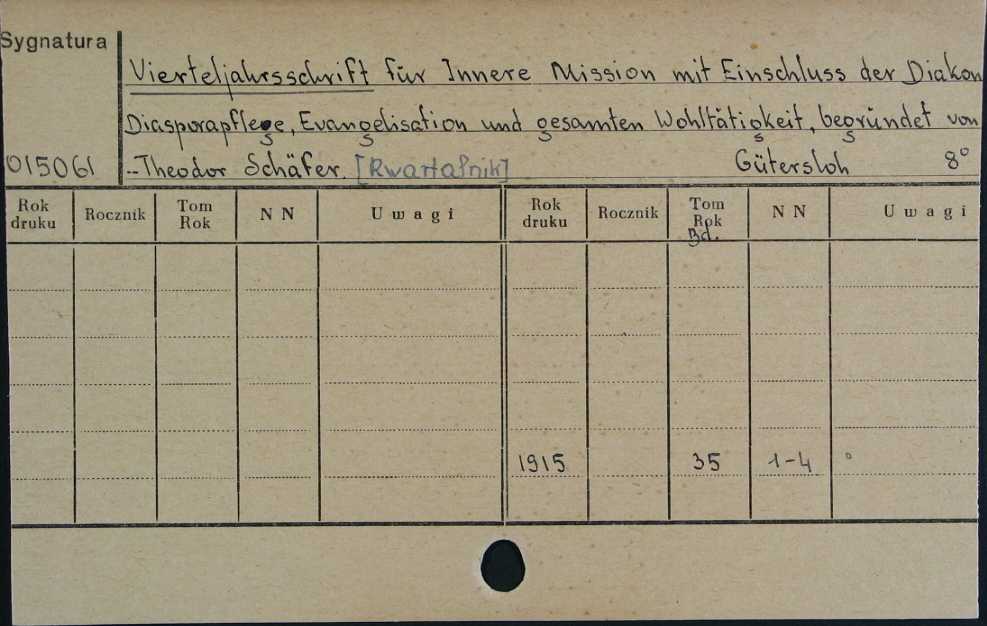 Sygnatura
Vierteljahrsschrift für Innere Mission mit Einschluss der Diakon
Diasporapflege, Evangelisation und gesamten Wohltätigkeit, begründet von
015061 --Theodor Schäfer. [Kwartalnik] Gütersloh 8°
Rok druku Rocznik Tom Rok N N Uwagi Rok druku Rocznik Tom Rok Bd. N N Uwagi
1915 35 1-4